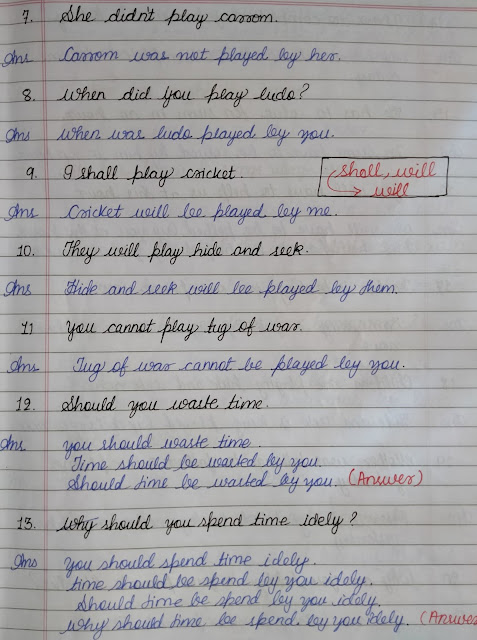 7. She didn't play carrom.
Ans Carrom was not played by her.
8. When did you play ludo?
Ans When was ludo played by you.
9. I shall play cricket. shall, will
→ will
Ans Cricket will be played by me.
10. They will play hide and seek.
Ans Hide and seek will be played by them.
11 You cannot play tug of war.
Ans Tug of war cannot be played by you.
12. Should you waste time.
Ans you should waste time.
Time should be wasted by you.
Should time be wasted by you. (Answer)
13. Why should you spend time idely?
Ans you should spend time idely.
time should be spend by you idely.
Should time be spend by you idely.
Why should time be spend by you idely. (Answer